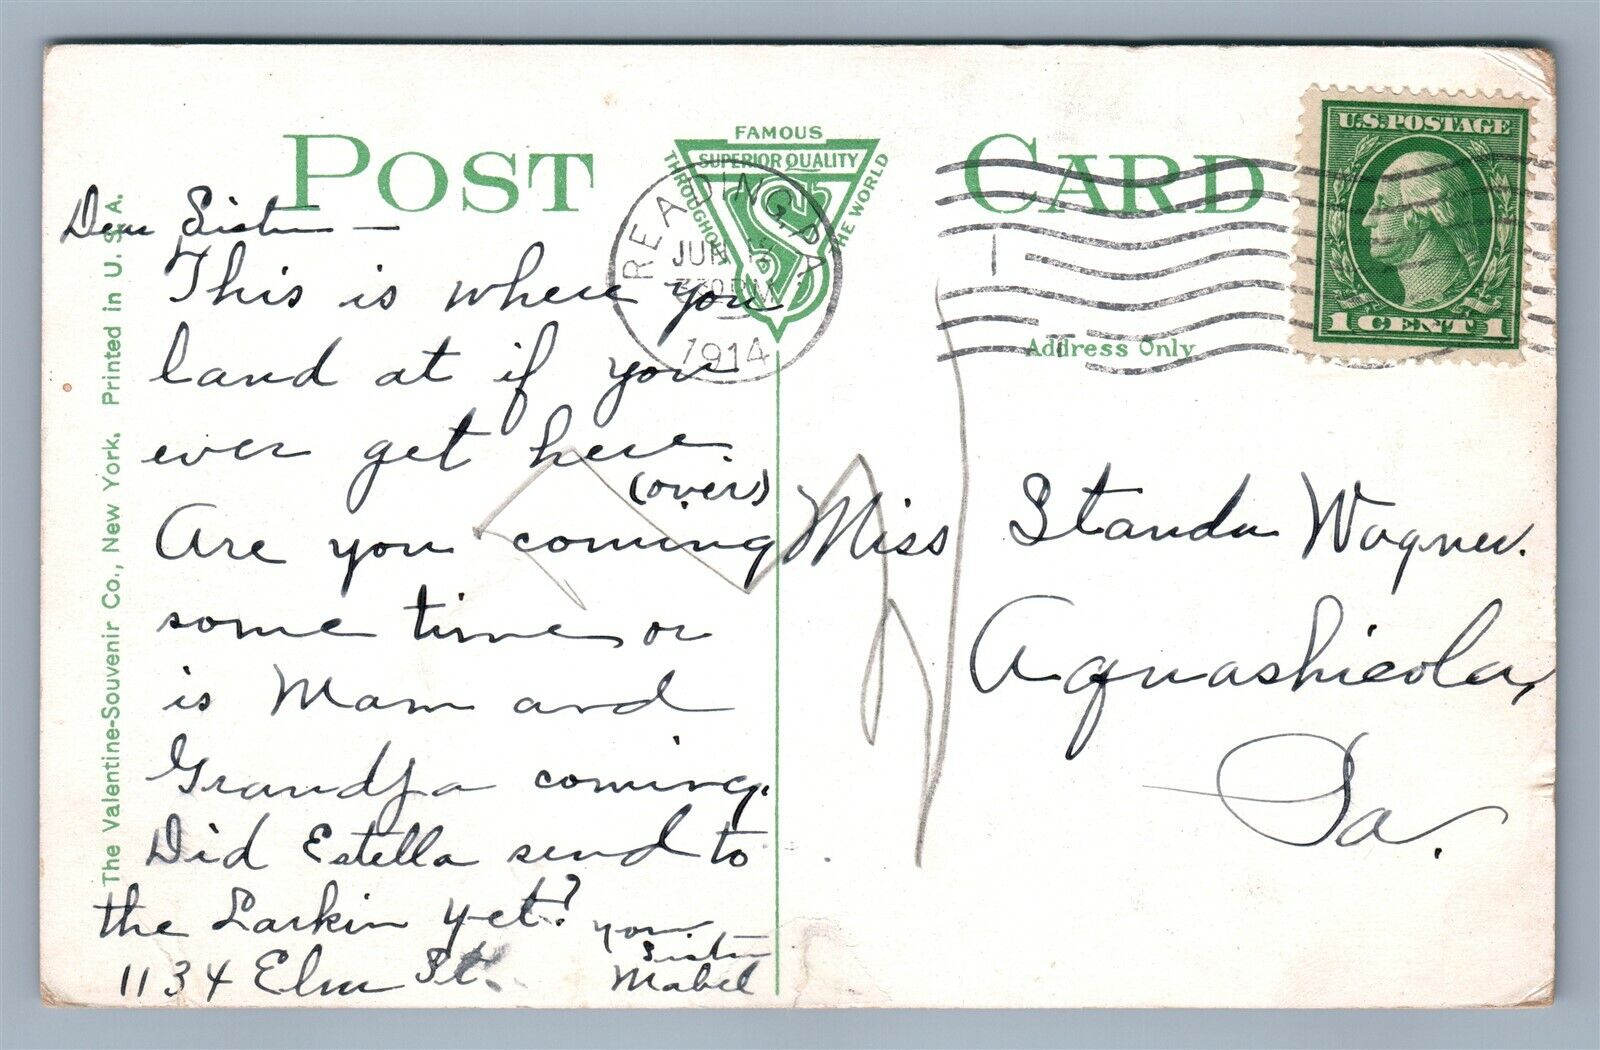 POST CARD
FAMOUS
SUPERIOR QUALITY
THROUGHOUT THE WORLD
READING, PA
JUN
330PM
1914
U.S. POSTAGE
1 CENT 1
Address Only
The Valentine-Souvenir Co., New York. Printed in U. S. A.
Dear Sister –
This is where you
land at if you
ever get here
(over)
Are you coming
some time or
is Mam and
Grandpa coming.
Did Estella send to
the Larkin yet?
your
Sister
Mabel
1134 Elm St.
Miss Wagner.
Aquashicola,
Pa.